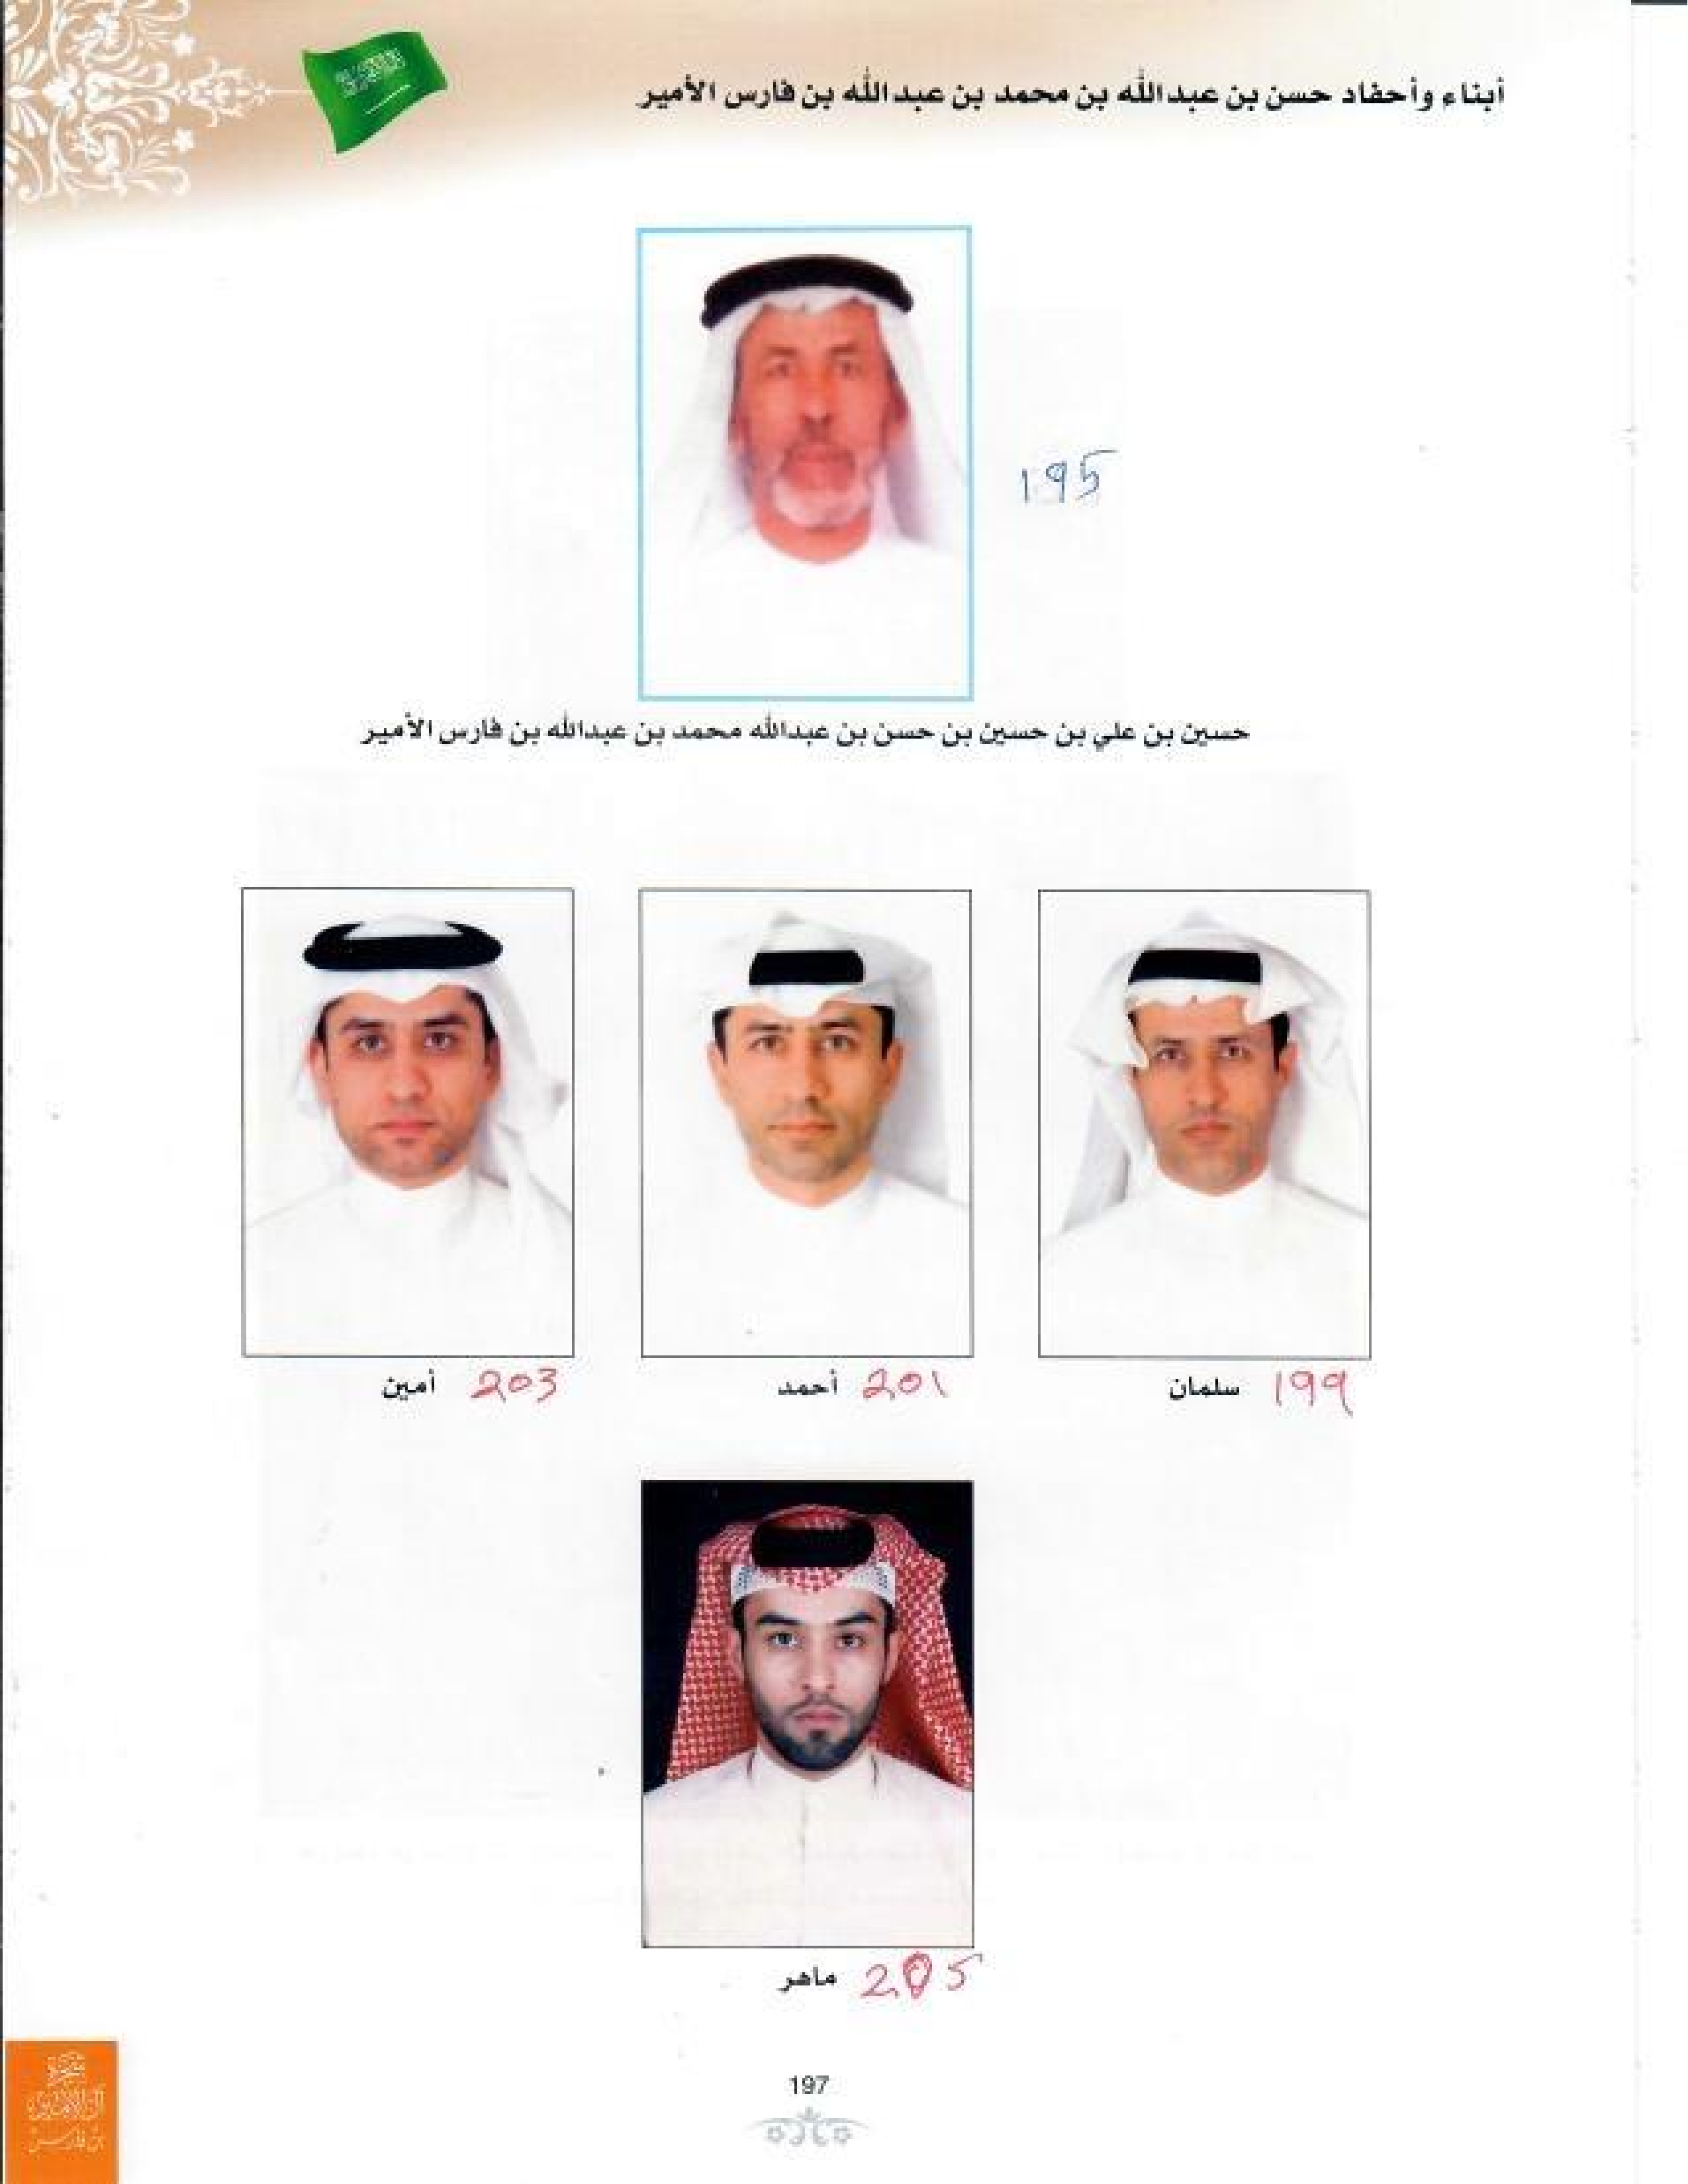 أبناء وأحفاد حسن بن عبدالله بن محمد بن عبدالله بن فارس الأمير
195
حسين بن علي بن حسين بن حسن بن عبدالله محمد بن عبدالله بن فارس الأمير
199 سلمان
201 أحمد
203 أمين
205 ماهر
197
شجرة
آل الأمير
بن فارس